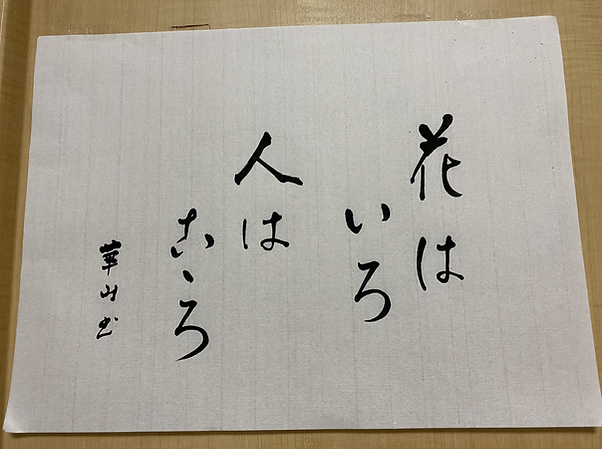 花は
いろ
人は
こゝろ
華山書